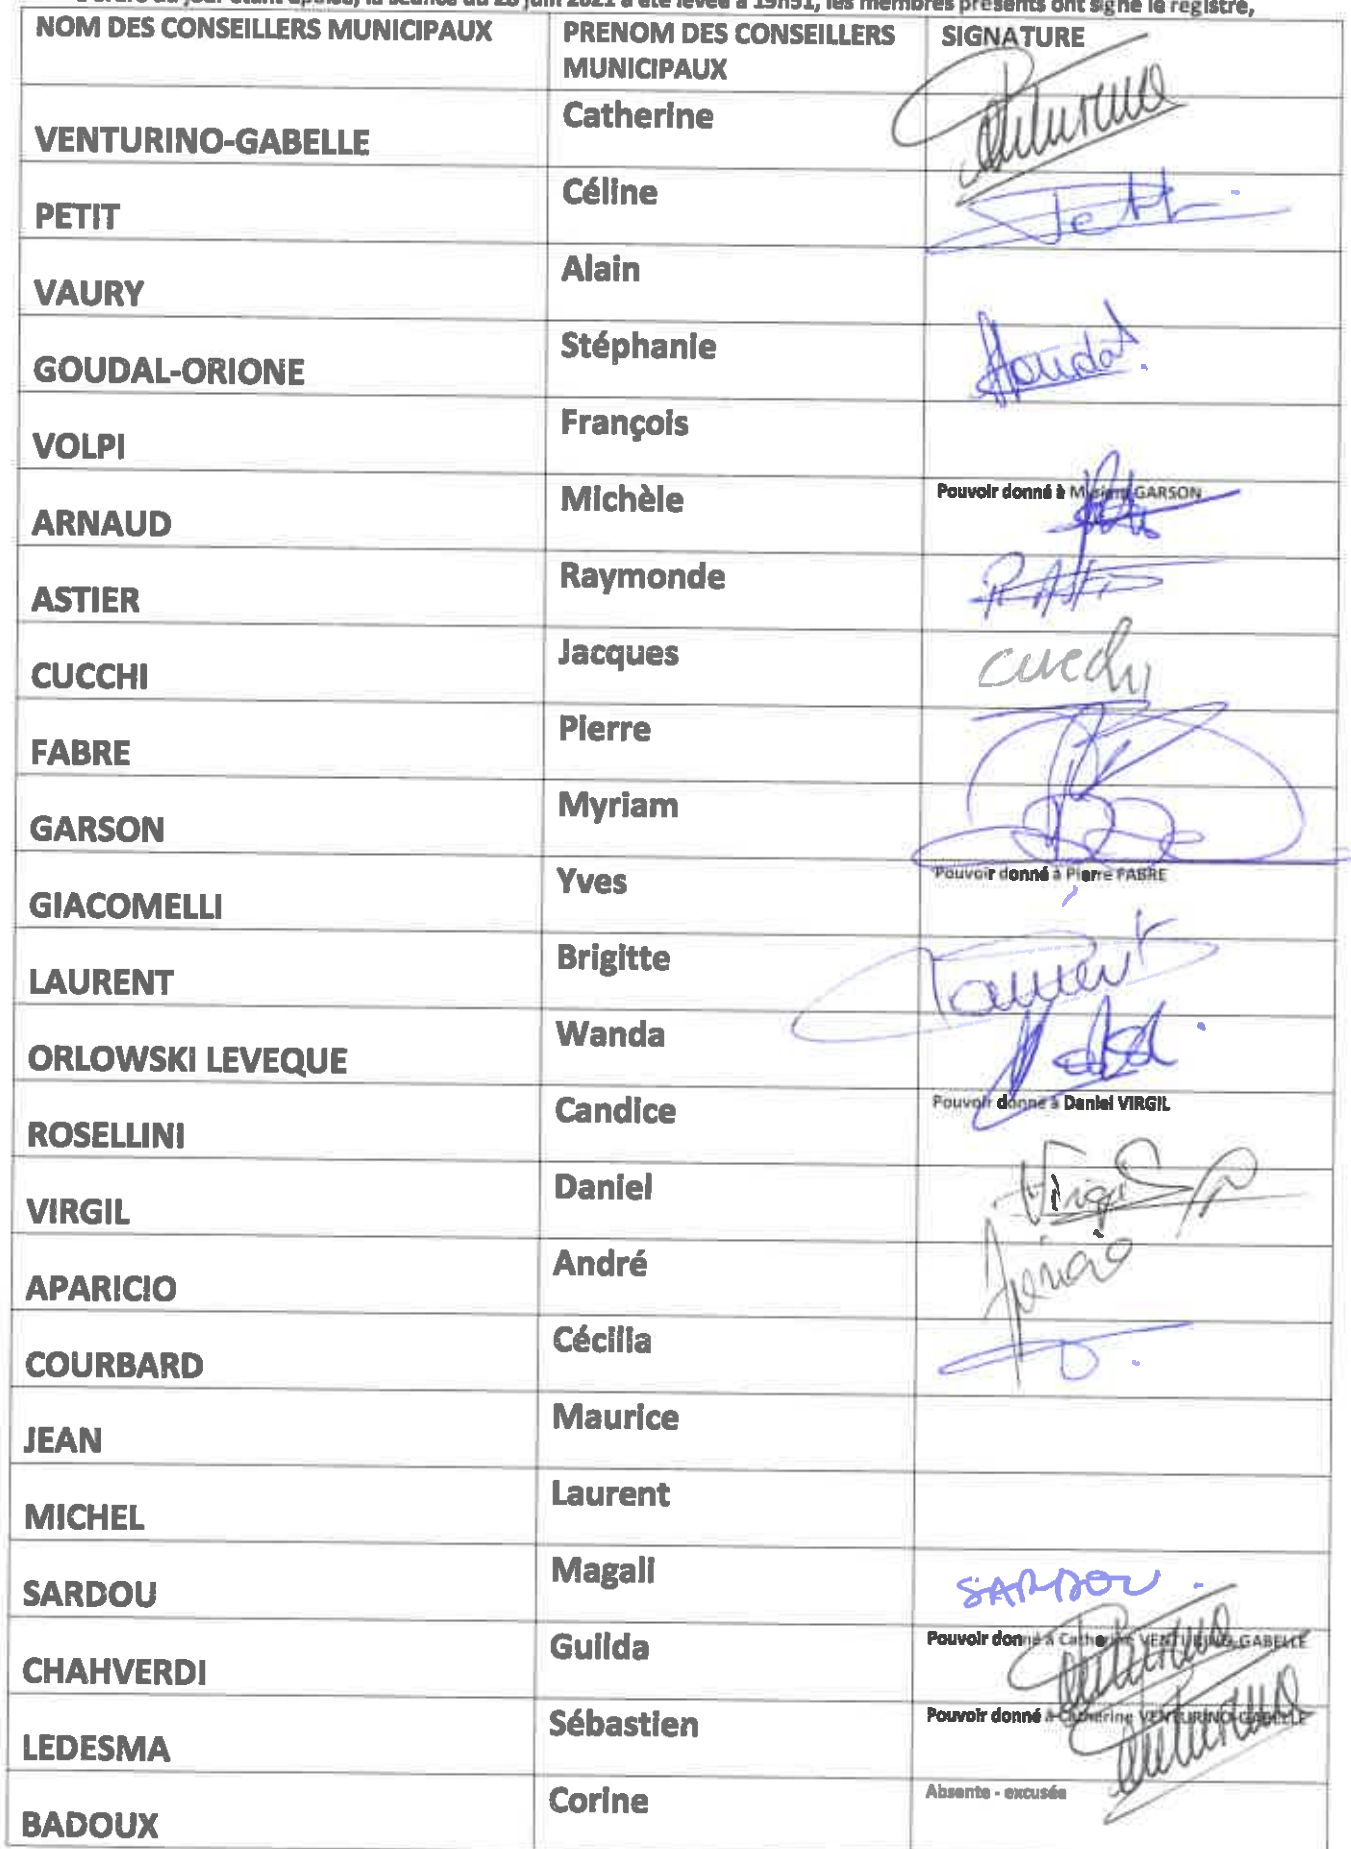 L'ordre du jour étant épuisé, la séance du 28 juin 2021 a été levée à 19h51, les membres présents ont signé le registre,
NOM DES CONSEILLERS MUNICIPAUX
PRENOM DES CONSEILLERS MUNICIPAUX
SIGNATURE
VENTURINO-GABELLE Catherine Venturino
PETIT Céline Petit
VAURY Alain
GOUDAL-ORIONE Stéphanie Goudal
VOLPI François
ARNAUD Michèle Pouvoir donné à Myriam GARSON
ASTIER Raymonde
CUCCHI Jacques Cucchi
FABRE Pierre
GARSON Myriam
GIACOMELLI Yves Pouvoir donné à Pierre FABRE
LAURENT Brigitte Laurent
ORLOWSKI LEVEQUE Wanda
ROSELLINI Candice Pouvoir donné à Daniel VIRGIL
VIRGIL Daniel Virgil
APARICIO André
COURBARD Cécilia
JEAN Maurice
MICHEL Laurent
SARDOU Magali SARDOU
CHAHVERDI Guilda Pouvoir donné à Catherine VENTURINO-GABELLE Venturino
LEDESMA Sébastien Pouvoir donné à Catherine VENTURINO-GABELLE Venturino
BADOUX Corine Absente - excusée